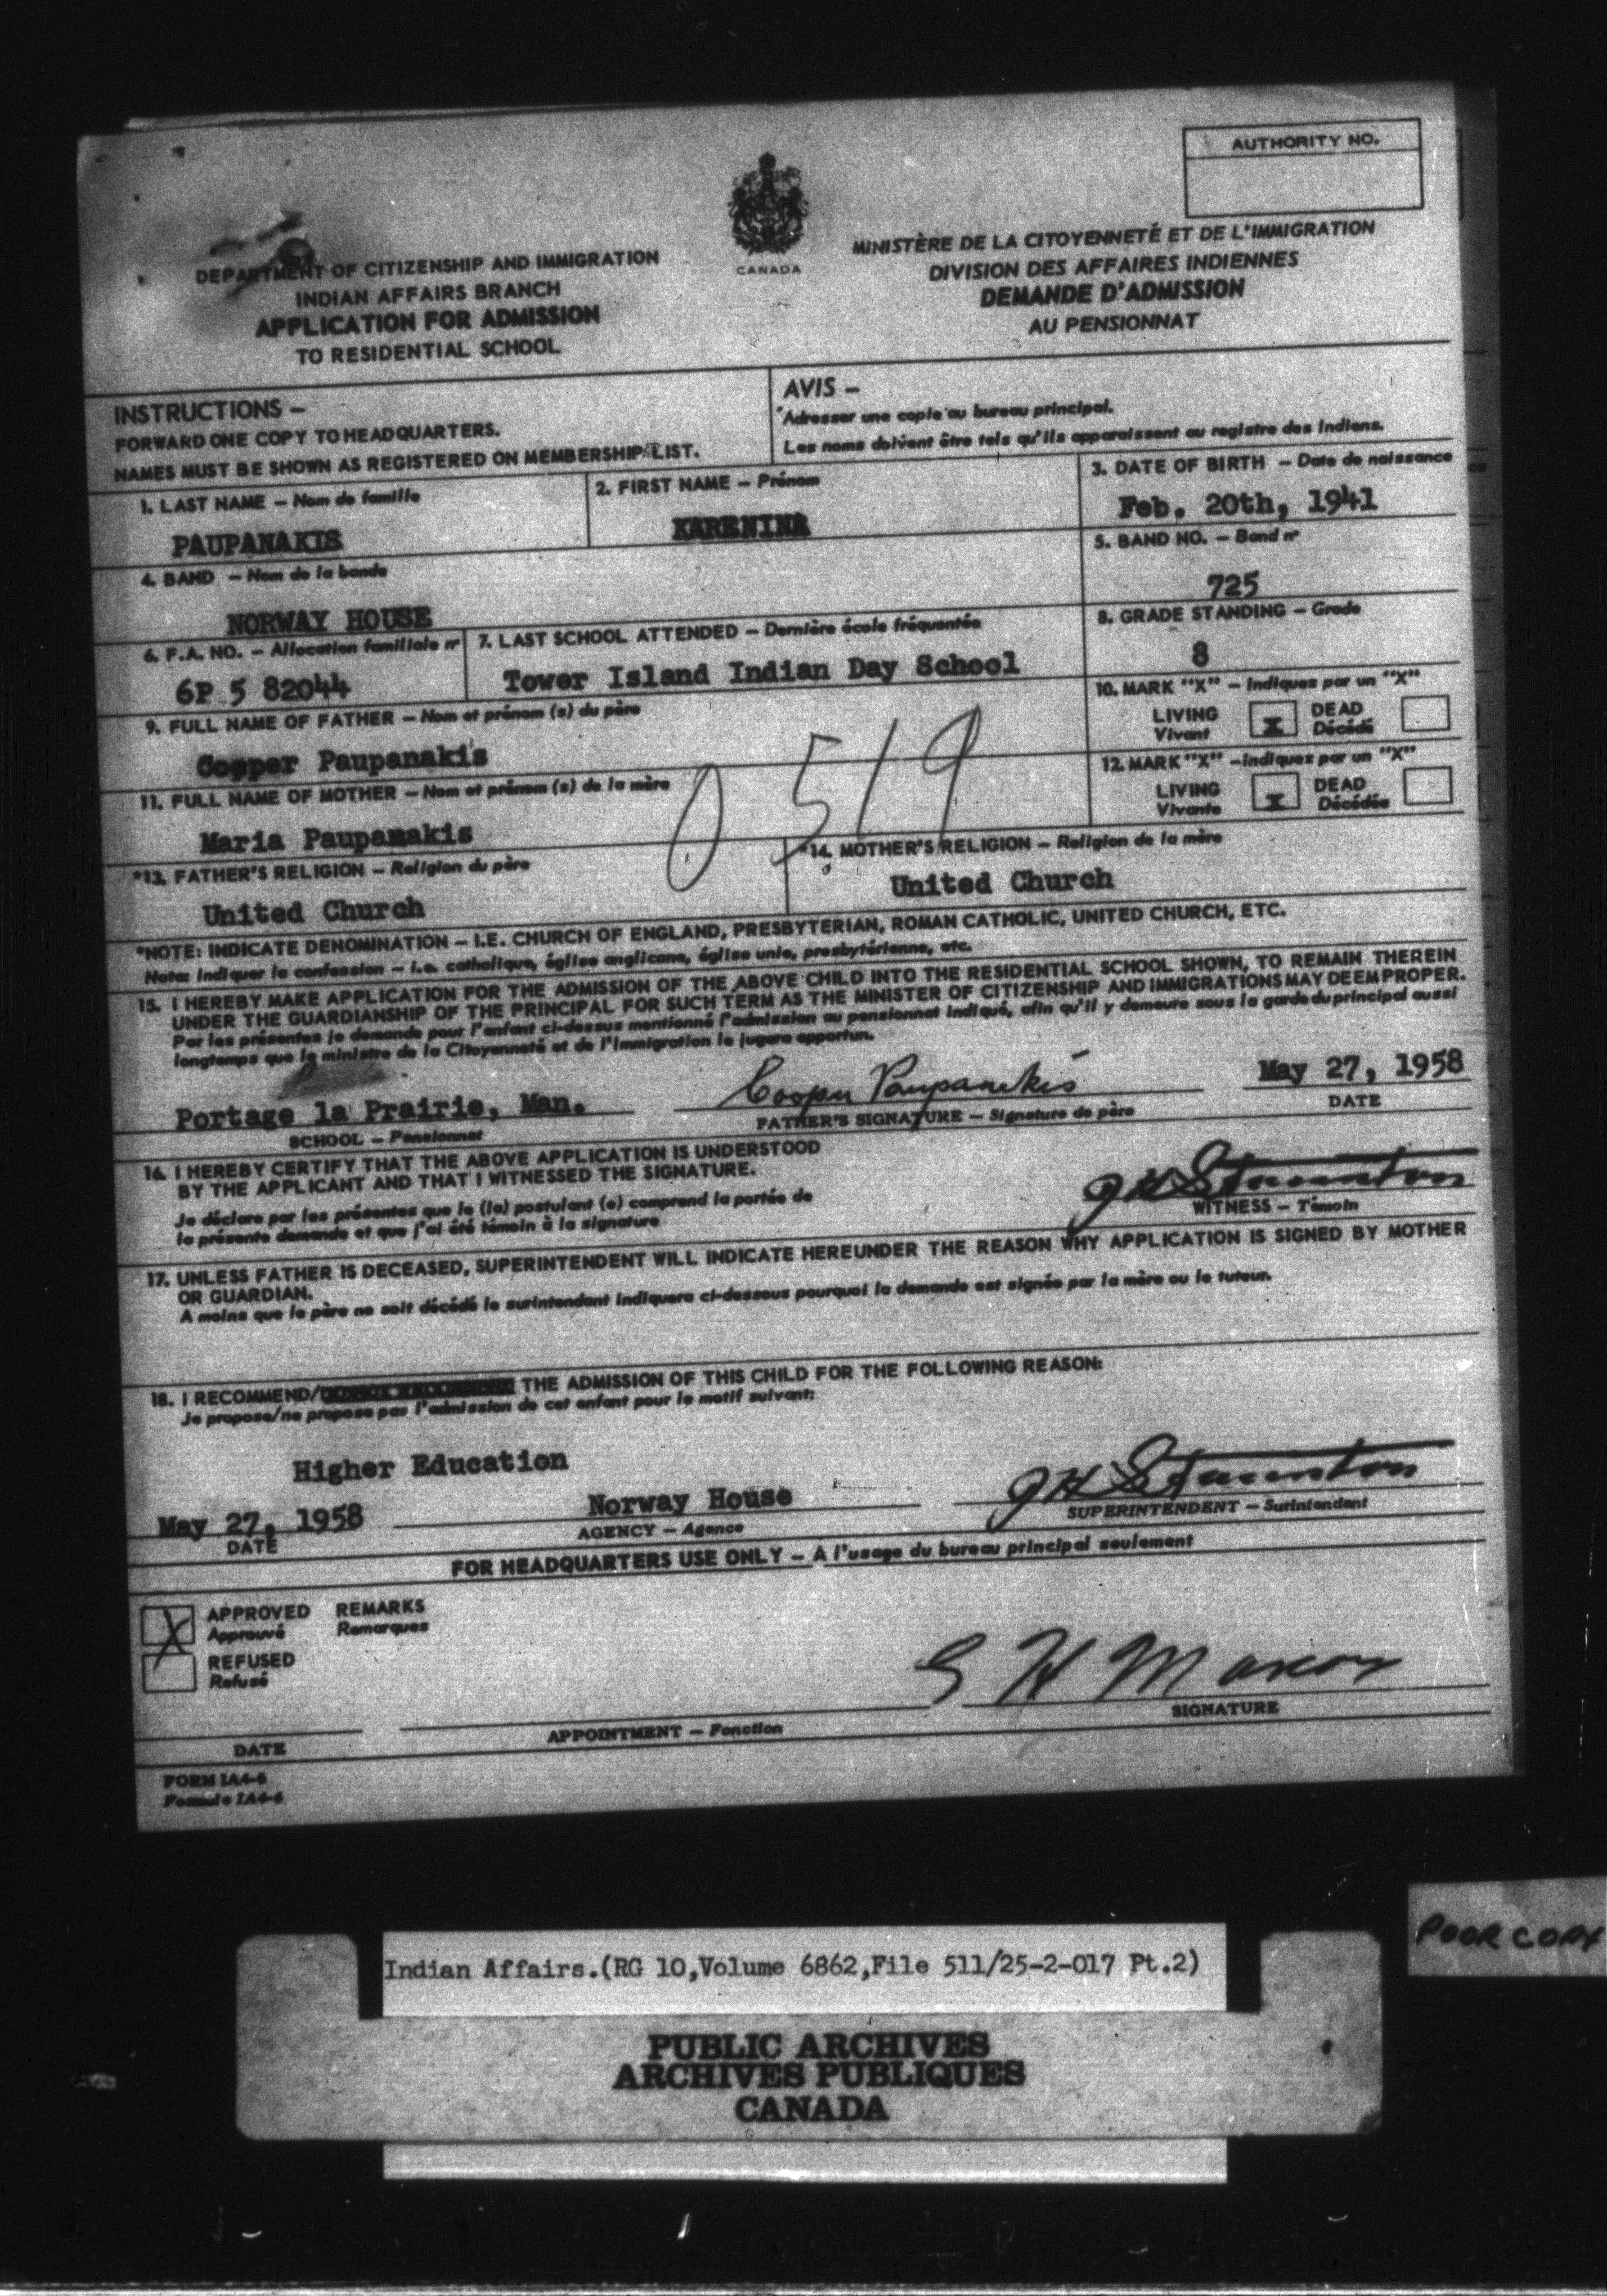 AUTHORITY NO.
DEPARTMENT OF CITIZENSHIP AND IMMIGRATION
INDIAN AFFAIRS BRANCH
APPLICATION FOR ADMISSION
TO RESIDENTIAL SCHOOL
CANADA
MINISTÈRE DE LA CITOYENNETÉ ET DE L'IMMIGRATION
DIVISION DES AFFAIRES INDIENNES
DEMANDE D'ADMISSION
AU PENSIONNAT
INSTRUCTIONS –
FORWARD ONE COPY TO HEADQUARTERS.
NAMES MUST BE SHOWN AS REGISTERED ON MEMBERSHIP LIST.
AVIS –
Adresser une copie au bureau principal.
Les noms doivent être tels qu'ils apparaissent au registre des Indiens.
1. LAST NAME – Nom de famille
PAUPANAKIS
2. FIRST NAME – Prénom
KARENINA
3. DATE OF BIRTH – Date de naissance
Feb. 20th, 1941
4. BAND – Nom de la bande
NORWAY HOUSE
5. BAND NO. – Band nº
725
6. F.A. NO. – Allocation familiale nº
6P 5 82044
7. LAST SCHOOL ATTENDED – Dernière école fréquentée
Tower Island Indian Day School
8. GRADE STANDING – Grade
8
9. FULL NAME OF FATHER – Nom et prénom (s) du père
Cooper Paupanakis
10. MARK "X" – Indiquez par un "X"
LIVING
Vivant
X
DEAD
Décédé
11. FULL NAME OF MOTHER – Nom et prénom (s) de la mère
Maria Paupanakis
0 519
12. MARK "X" – Indiquez par un "X"
LIVING
Vivante
X
DEAD
Décédée
*13. FATHER'S RELIGION – Religion du père
United Church
*14. MOTHER'S RELIGION – Religion de la mère
United Church
*NOTE: INDICATE DENOMINATION – I.E. CHURCH OF ENGLAND, PRESBYTERIAN, ROMAN CATHOLIC, UNITED CHURCH, ETC.
Nota: Indiquer la confession – i.e. catholique, église anglicane, église unie, presbytérienne, etc.
15. I HEREBY MAKE APPLICATION FOR THE ADMISSION OF THE ABOVE CHILD INTO THE RESIDENTIAL SCHOOL SHOWN, TO REMAIN THEREIN
UNDER THE GUARDIANSHIP OF THE PRINCIPAL FOR SUCH TERM AS THE MINISTER OF CITIZENSHIP AND IMMIGRATIONS MAY DEEM PROPER.
Par les présentes je demande pour l'enfant ci-dessus mentionné l'admission au pensionnat indiqué, afin qu'il y demeure sous la garde du principal aussi
longtemps que le ministre de la Citoyenneté et de l'Immigration le jugera opportun.
Portage la Prairie, Man.
SCHOOL – Pensionnat
Cooper Paupanekis
FATHER'S SIGNATURE – Signature de père
May 27, 1958
DATE
16. I HEREBY CERTIFY THAT THE ABOVE APPLICATION IS UNDERSTOOD
BY THE APPLICANT AND THAT I WITNESSED THE SIGNATURE.
Je déclare par les présentes que le (la) postulant (e) comprend la portée de
la présente demande et que j'ai été témoin à la signature
JH Staunton
WITNESS – Témoin
17. UNLESS FATHER IS DECEASED, SUPERINTENDENT WILL INDICATE HEREUNDER THE REASON WHY APPLICATION IS SIGNED BY MOTHER
OR GUARDIAN.
A moins que le père ne soit décédé le surintendant indiquera ci-dessous pourquoi la demande est signée par la mère ou le tuteur.
18. I RECOMMEND/ THE ADMISSION OF THIS CHILD FOR THE FOLLOWING REASON:
Je propose/ne propose pas l'admission de cet enfant pour le motif suivant:
Higher Education
May 27, 1958
DATE
Norway House
AGENCY – Agence
JH Staunton
SUPERINTENDENT – Surintendant
FOR HEADQUARTERS USE ONLY – A l'usage du bureau principal seulement
X
APPROVED
Approuvé
REMARKS
Remarques
REFUSED
Refusé
DATE
APPOINTMENT – Fonction
SIGNATURE
FORM IA4-6
Formule IA4-6
POOR COPY
Indian Affairs.(RG 10,Volume 6862,File 511/25-2-017 Pt.2)
PUBLIC ARCHIVES
ARCHIVES PUBLIQUES
CANADA